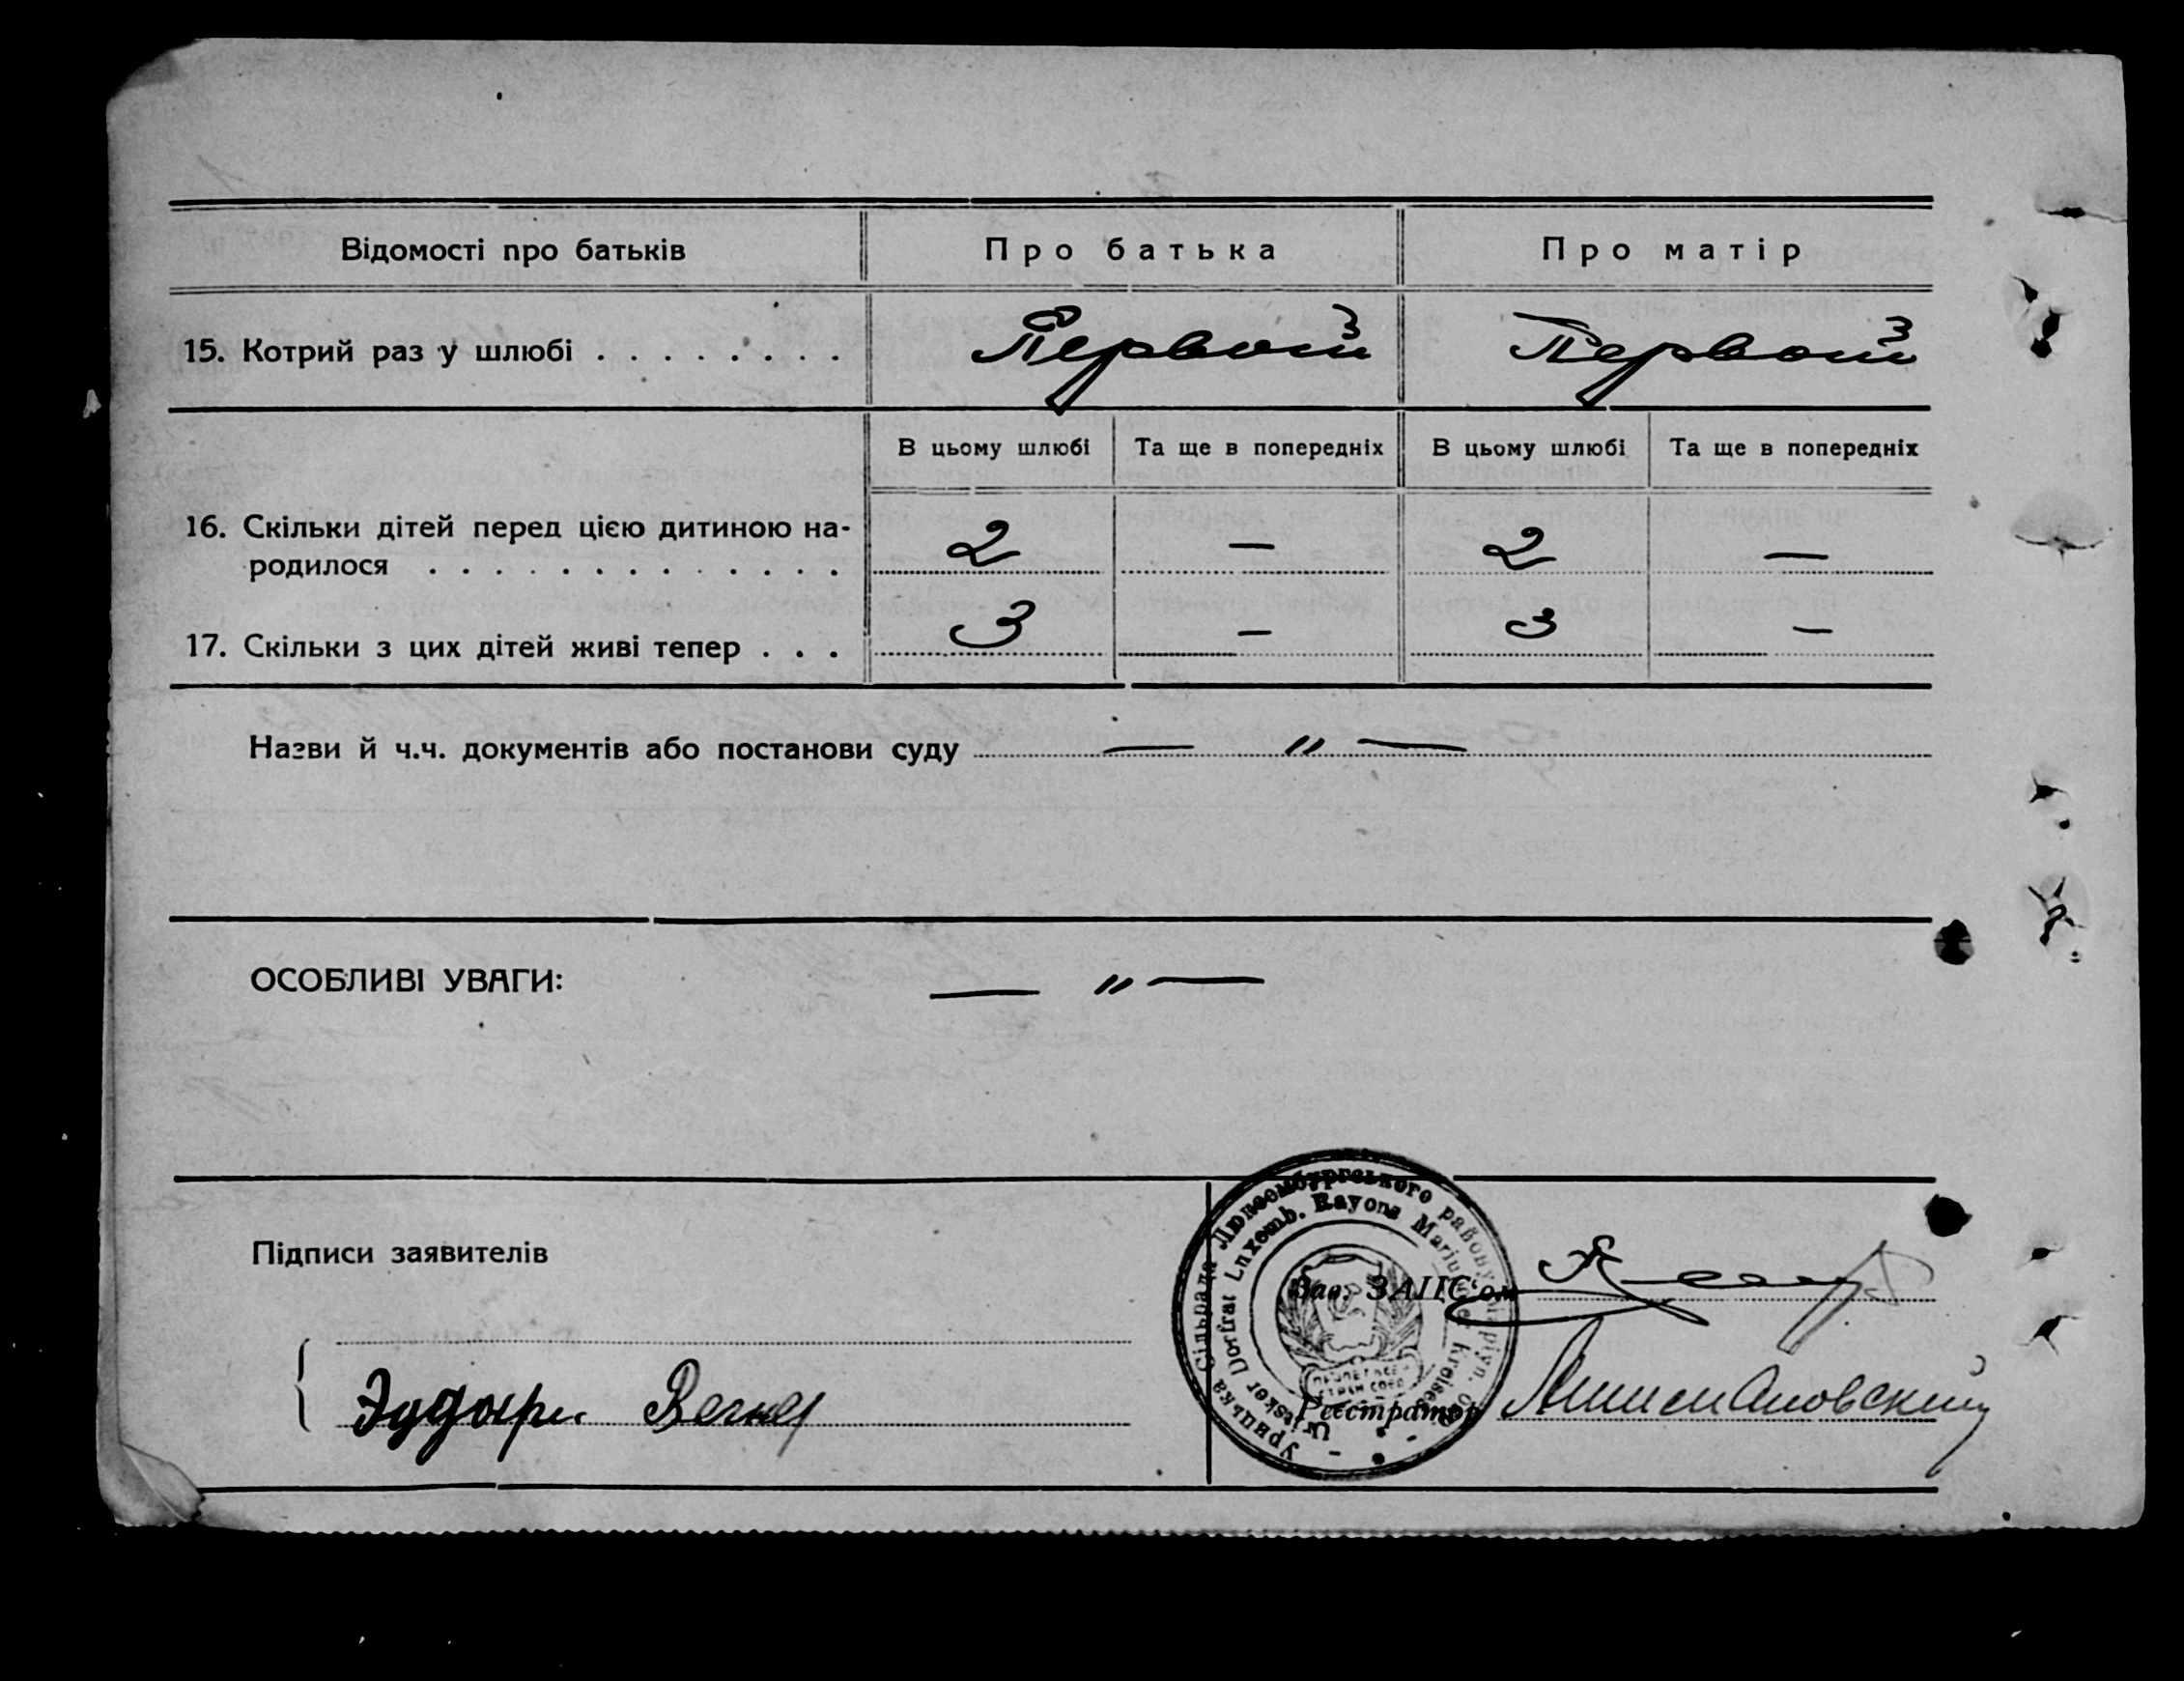 Відомості про батьків
Про батька
Про матір
15. Котрий раз у шлюбі . . . . . . . .
Первой
Первой
В цьому шлюбі
Та ще в попередніх
В цьому шлюбі
Та ще в попередніх
16. Скільки дітей перед цією дитиною на-
родилося . . . . . . . . . . . . .
2
—
2
—
17. Скільки з цих дітей живі тепер . . .
3
—
3
—
Назви й ч.ч. документів або постанови суду — " —
ОСОБЛИВІ УВАГИ: — " —
Підписи заявителів
Зав. ЗАГС'ом
Вегнер
Реєстратор
Урицька Сільрада Люксембургського району Маріуп.
Uritzker Dorfrat Luxemb. Rayons Mariupoler Kreises